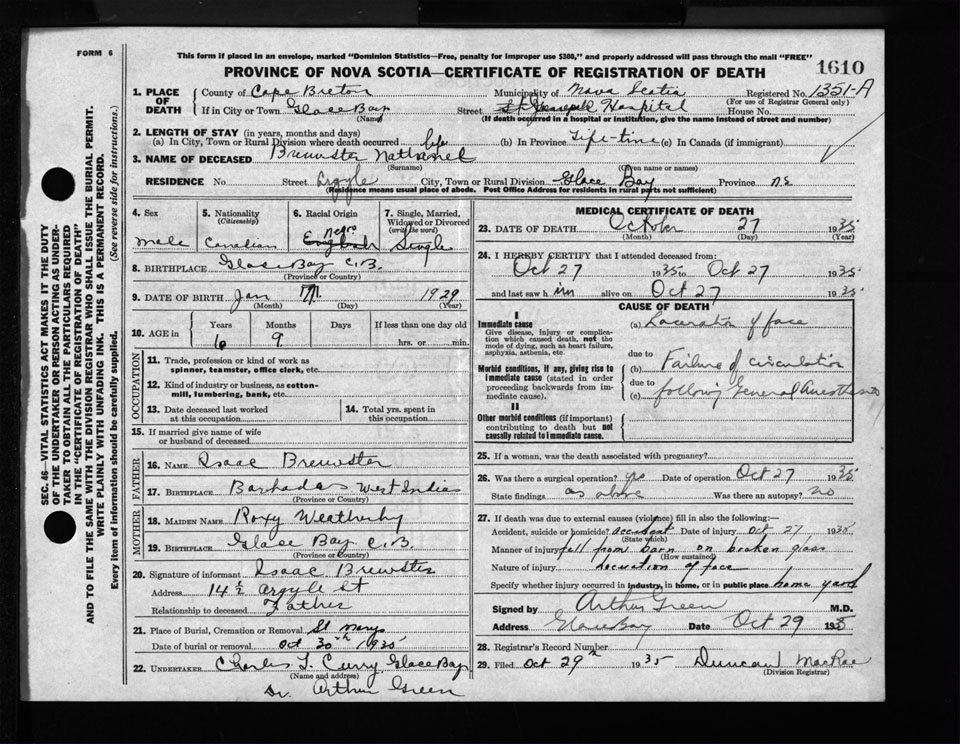 FORM 6
This form if placed in an envelope, marked "Dominion Statistics—Free, penalty for improper use $300," and properly addressed will pass through the mail "FREE"
1610
PROVINCE OF NOVA SCOTIA—CERTIFICATE OF REGISTRATION OF DEATH
1. PLACE OF DEATH County of Cape Breton Municipality of Nova Scotia Registered No. 1351-A
(For use of Registrar General only)
If in City or Town Glace Bay Street St Joseph Hospital House No.
(Name) (If death occurred in a hospital or institution, give the name instead of street and number)
2. LENGTH OF STAY (in years, months and days)
(a) In City, Town or Rural Division where death occurred life (b) In Province Life-time (c) In Canada (if immigrant)
3. NAME OF DECEASED Brewster Nathaniel
(Surname) (Given name or names)
RESIDENCE No. Street Argyle City, Town or Rural Division Glace Bay Province NS
(Residence means usual place of abode. Post Office Address for residents in rural parts not sufficient)
SEC. 46—VITAL STATISTICS ACT MAKES IT THE DUTY
OF THE UNDERTAKER OR PERSON ACTING AS UNDER-
TAKER TO OBTAIN ALL THE PARTICULARS REQUIRED
IN THE "CERTIFICATE OF REGISTRATION OF DEATH"
AND TO FILE THE SAME WITH THE DIVISION REGISTRAR WHO SHALL ISSUE THE BURIAL PERMIT.
WRITE PLAINLY WITH UNFADING INK. THIS IS A PERMANENT RECORD.
Every item of information should be carefully supplied. (See reverse side for instructions.)
4. Sex 5. Nationality 6. Racial Origin 7. Single, Married,
(Citizenship) Widowed or Divorced
(write the word)
Male Canadian English negro Single
8. BIRTHPLACE Glace Bay C.B.
(Province or Country)
9. DATE OF BIRTH Jan 1929
(Month) (Day) (Year)
10. AGE in Years Months Days If less than one day
6 9 hrs. or min.
OCCUPATION
11. Trade, profession or kind of work as
spinner, teamster, office clerk, etc.
12. Kind of industry or business, as cotton-
mill, lumbering, bank, etc.
13. Date deceased last worked at this occupation
14. Total yrs. spent in this occupation
15. If married give name of wife
or husband of deceased
FATHER
16. NAME Isaac Brewster
17. BIRTHPLACE Barbados West Indies
(Province or Country)
MOTHER
18. MAIDEN NAME Roxy Weatherby
19. BIRTHPLACE Glace Bay C.B.
(Province or Country)
20. Signature of informant Isaac Brewster
Address 14½ Argyle St
Relationship to deceased Father
21. Place of Burial, Cremation or Removal St Marys
Date of burial or removal Oct 30th 1935
22. UNDERTAKER Charles T. Curry Glace Bay
(Name and address)
Dr. Arthur Green
MEDICAL CERTIFICATE OF DEATH
23. DATE OF DEATH October 27 1935
(Month) (Day) (Year)
24. I HEREBY CERTIFY that I attended deceased from:
Oct 27 1935 to Oct 27 1935
and last saw him alive on Oct 27 1935
CAUSE OF DEATH
I
Immediate cause (a) Laceration of face
Give disease, injury or complica-
tion which caused death, not the
mode of dying, such as heart failure,
asphyxia, asthenia, etc.
due to
Morbid conditions, if any, giving rise to
immediate cause (stated in order
proceeding backwards from im-
mediate cause).
(b) Failure of circulation
due to
(c) following General Anesthesia
II
Other morbid conditions (if important)
contributing to death but not
causally related to immediate cause.
25. If a woman, was the death associated with pregnancy?
26. Was there a surgical operation? yes Date of operation Oct 27 1935
State findings as above Was there an autopsy? no
27. If death was due to external causes (violence) fill in also the following:—
Accident, suicide or homicide? accident Date of injury Oct 27 1935
(State which)
Manner of injury fell from barn on broken glass
(How sustained)
Nature of injury laceration of face
Specify whether injury occurred in industry, in home, or in public place home yard
Signed by Arthur Green M.D.
Address Glace Bay Date Oct 29 1935
28. Registrar's Record Number
29. Filed Oct 29th 1935 Duncan MacRae
(Division Registrar)